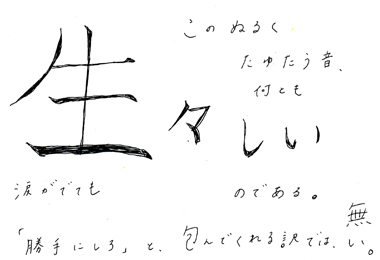 このぬるく
たゆたう音、
何とも
生々しい
のである。
涙がでても
「勝手にしろ」と、包んでくれる訳では、無い。